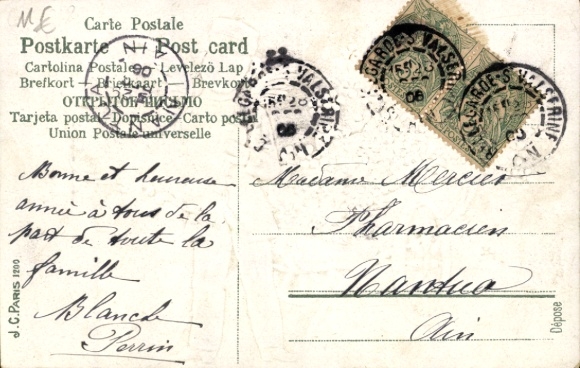 Carte Postale
Postkarte Post card
Cartolina Postale Levelezö Lap
Brefkort - Briefkaart - Brevkort
ОТКРЫТОЕ ПИСЬМО
Tarjeta postal - Dopisnice - Carto postal
Union Postale universelle
BELLEGARDE-S-VALSERINE
AIN
Bonne et heureuse
année à tous de la
part de toute la
famille
Blanche
Perrin
Madame Mercier
Pharmacien
Nantua
Ain
J.C. PARIS 1200
Déposé